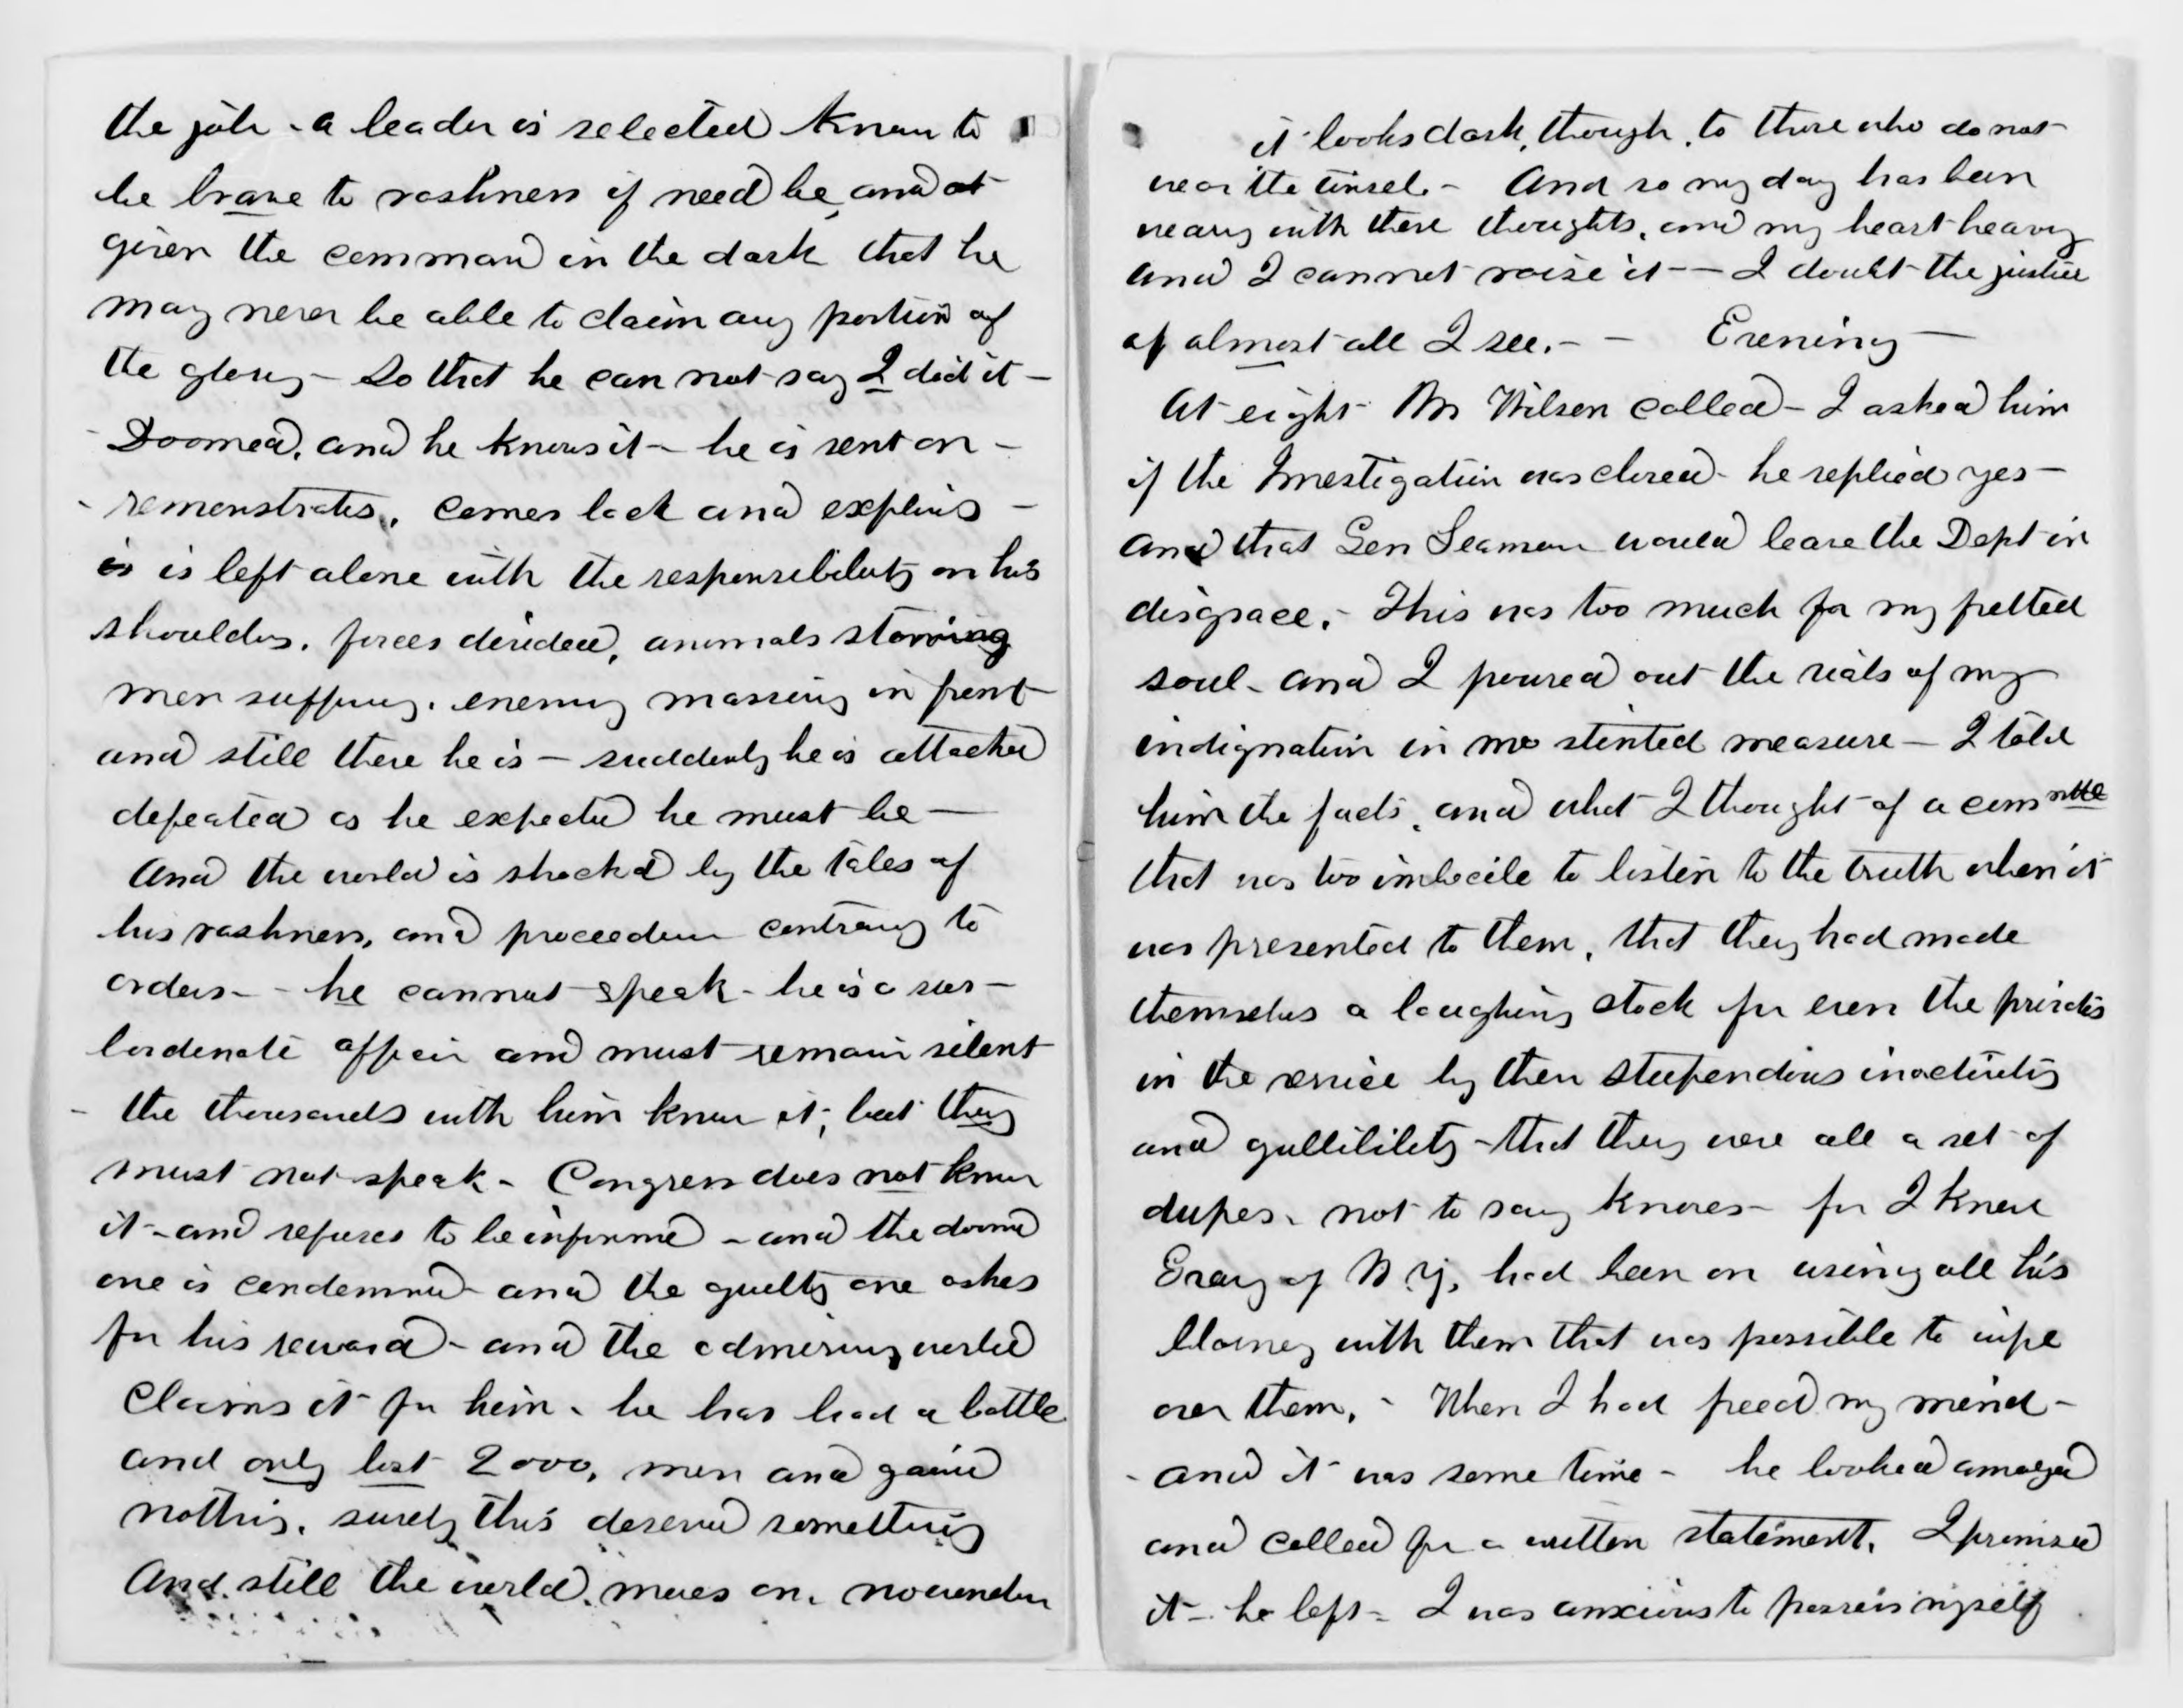 the job - a leader is selected known to
be brave to rashness if need be, and at
given the command in the dark that he
may never be able to claim any portion of
the glory - So that he can not say I did it -
Doomed, and he knows it - he is sent on -
- remonstrates, comes back and explains -
is is left alone with the responsibility on his
shoulders, forces divided, animals starving
men suffering, enemy massing in front
and still there he is - suddenly he is attacked
defeated as he expected he must be -
And the world is shocked by the tales of
his rashness, and procedure contrary to
orders - - he cannot speak - he is a sub-
bordenate officer and must remain silent
- the thousands with him know it, but they
must not speak - Congress does not know
it - and refuses to be informed - and the doomed
one is condemned - and the guilty one askes
for his reward - and the admiring world
claims it for him - he has had a battle
and only lost 2000, men and gained
nothing, surely this deserved something
And still the world moves on, no wonder
it looks dark, though, to those who do not
wear the tinsel. - And so my day has been
weary with these thoughts, and my heart heavy
and I cannot raise it - - I doubt the justice
of almost all I see. - - Evening -
At eight Mr Wilson called - I asked him
if the Investigation was closed - he replied yes -
and that Gen Seaman would leave the Dept in
disgrace. - This was too much for my fretted
soul - and I poured out the vials of my
indignation in no stinted measure - I told
him the facts, and what I thought of a committe
that was too imbecile to listen to the truth when it
was presented to them, that they had made
themselves a laughing stock for even the privates
in the service by their stupendous inactivity
and gullibility - that they were all a set of
dupes, not to say knaves - for I knew
Gray of N.Y. had been on using all his
blarney with them that was possible to wipe
over them. - When I had freed my mind -
- and it was some time - he looked amazed
and called for a written statement. I promised
it - he left - I was anxious to possess myself